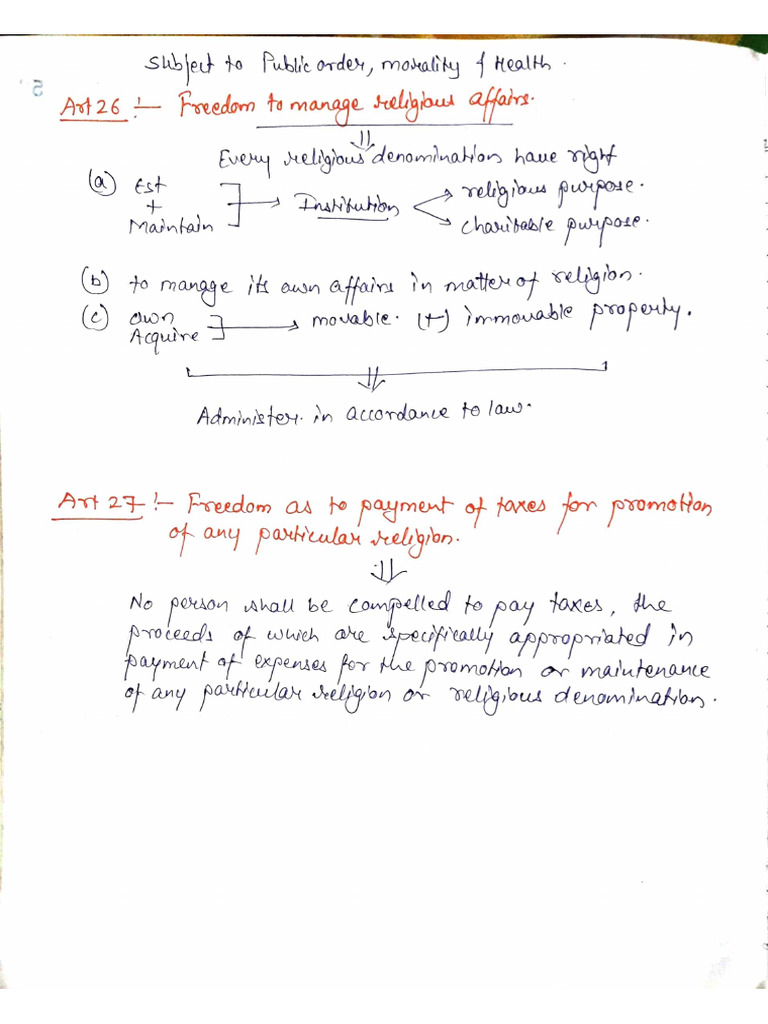 Subject to Public order, morality & Health.
Art 26 :- Freedom to manage religious affairs.
⇓
Every religious denomination have right
(a) Est + Maintain ] → Institution < → religious purpose. → charitable purpose.
(b) to manage its own affairs in matter of religion.
(c) Own Acquire ] → movable. (+) immovable property.
⇓
Administer. in accordance to law.
Art 27 :- Freedom as to payment of taxes for promotion
of any particular religion.
⇓
No person shall be compelled to pay taxes, the
proceeds of which are specifically appropriated in
payment of expenses for the promotion or maintenance
of any particular religion or religious denomination.